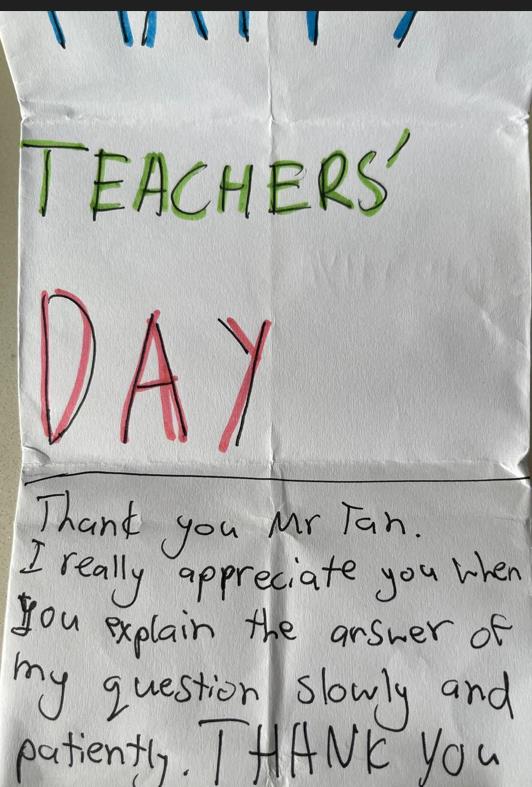 HAPPY
TEACHERS'
DAY
Thank you Mr Tan.
I really appreciate you when
you explain the answer of
my question slowly and
patiently. THANK you